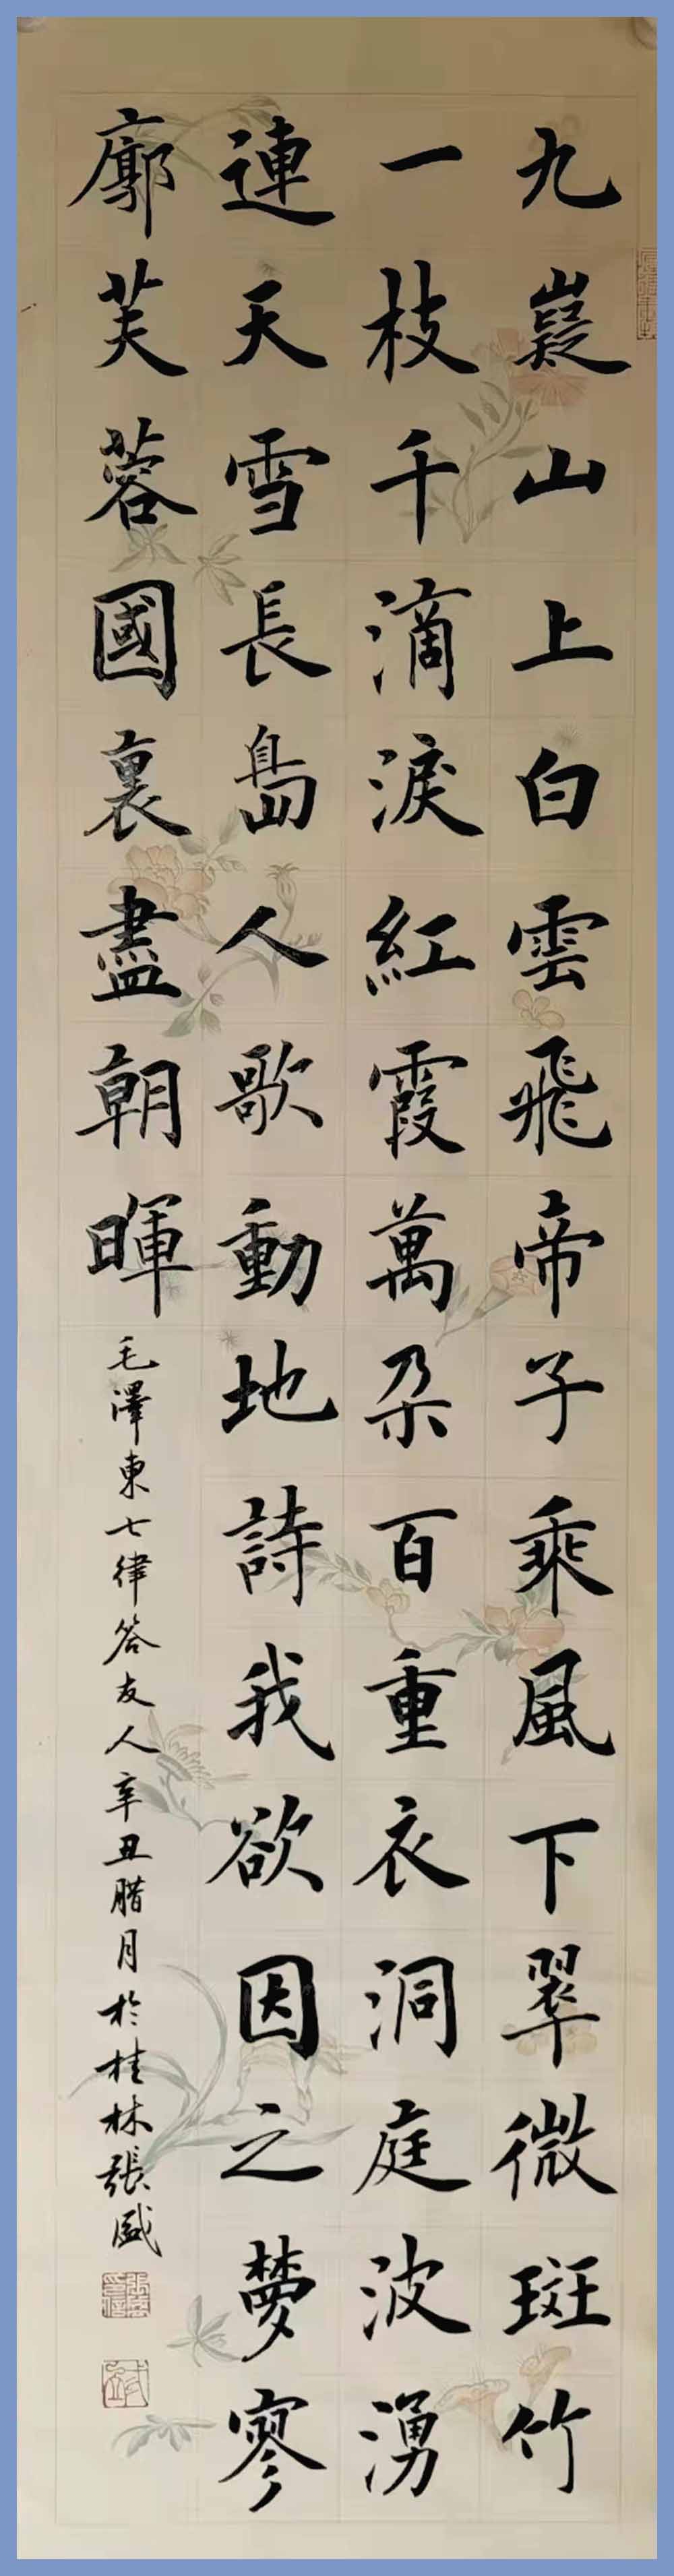 九嶷山上白雲飛帝子乘風下翠微斑竹
一枝千滴淚紅霞萬朵百重衣洞庭波湧
連天雪長島人歌動地詩我欲因之夢寥
廓芙蓉國裏盡朝暉
毛澤東七律答友人辛丑腊月於桂林張盛